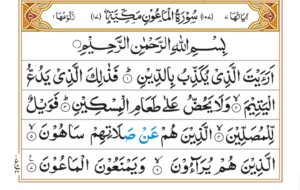 اٰیَاتُهَا ٧ (١٠٧) سُوْرَةُ الْمَاعُوْنِ مَكِّيَّةٌ (١٧) رُكُوْعُهَا ١
بِسْمِ اللهِ الرَّحْمٰنِ الرَّحِيْمِ
اَرَءَيْتَ الَّذِىْ يُكَذِّبُ بِالدِّيْنِ ۝ فَذٰلِكَ الَّذِىْ يَدُعُّ
الْيَتِيْمَ ۝ وَلَا يَحُضُّ عَلٰى طَعَامِ الْمِسْكِيْنِ ۝ فَوَيْلٌ
لِّلْمُصَلِّيْنَ ۝ الَّذِيْنَ هُمْ عَنْ صَلَاتِهِمْ سَاهُوْنَ ۝
الَّذِيْنَ هُمْ يُرَآءُوْنَ ۝ وَيَمْنَعُوْنَ الْمَاعُوْنَ ۝